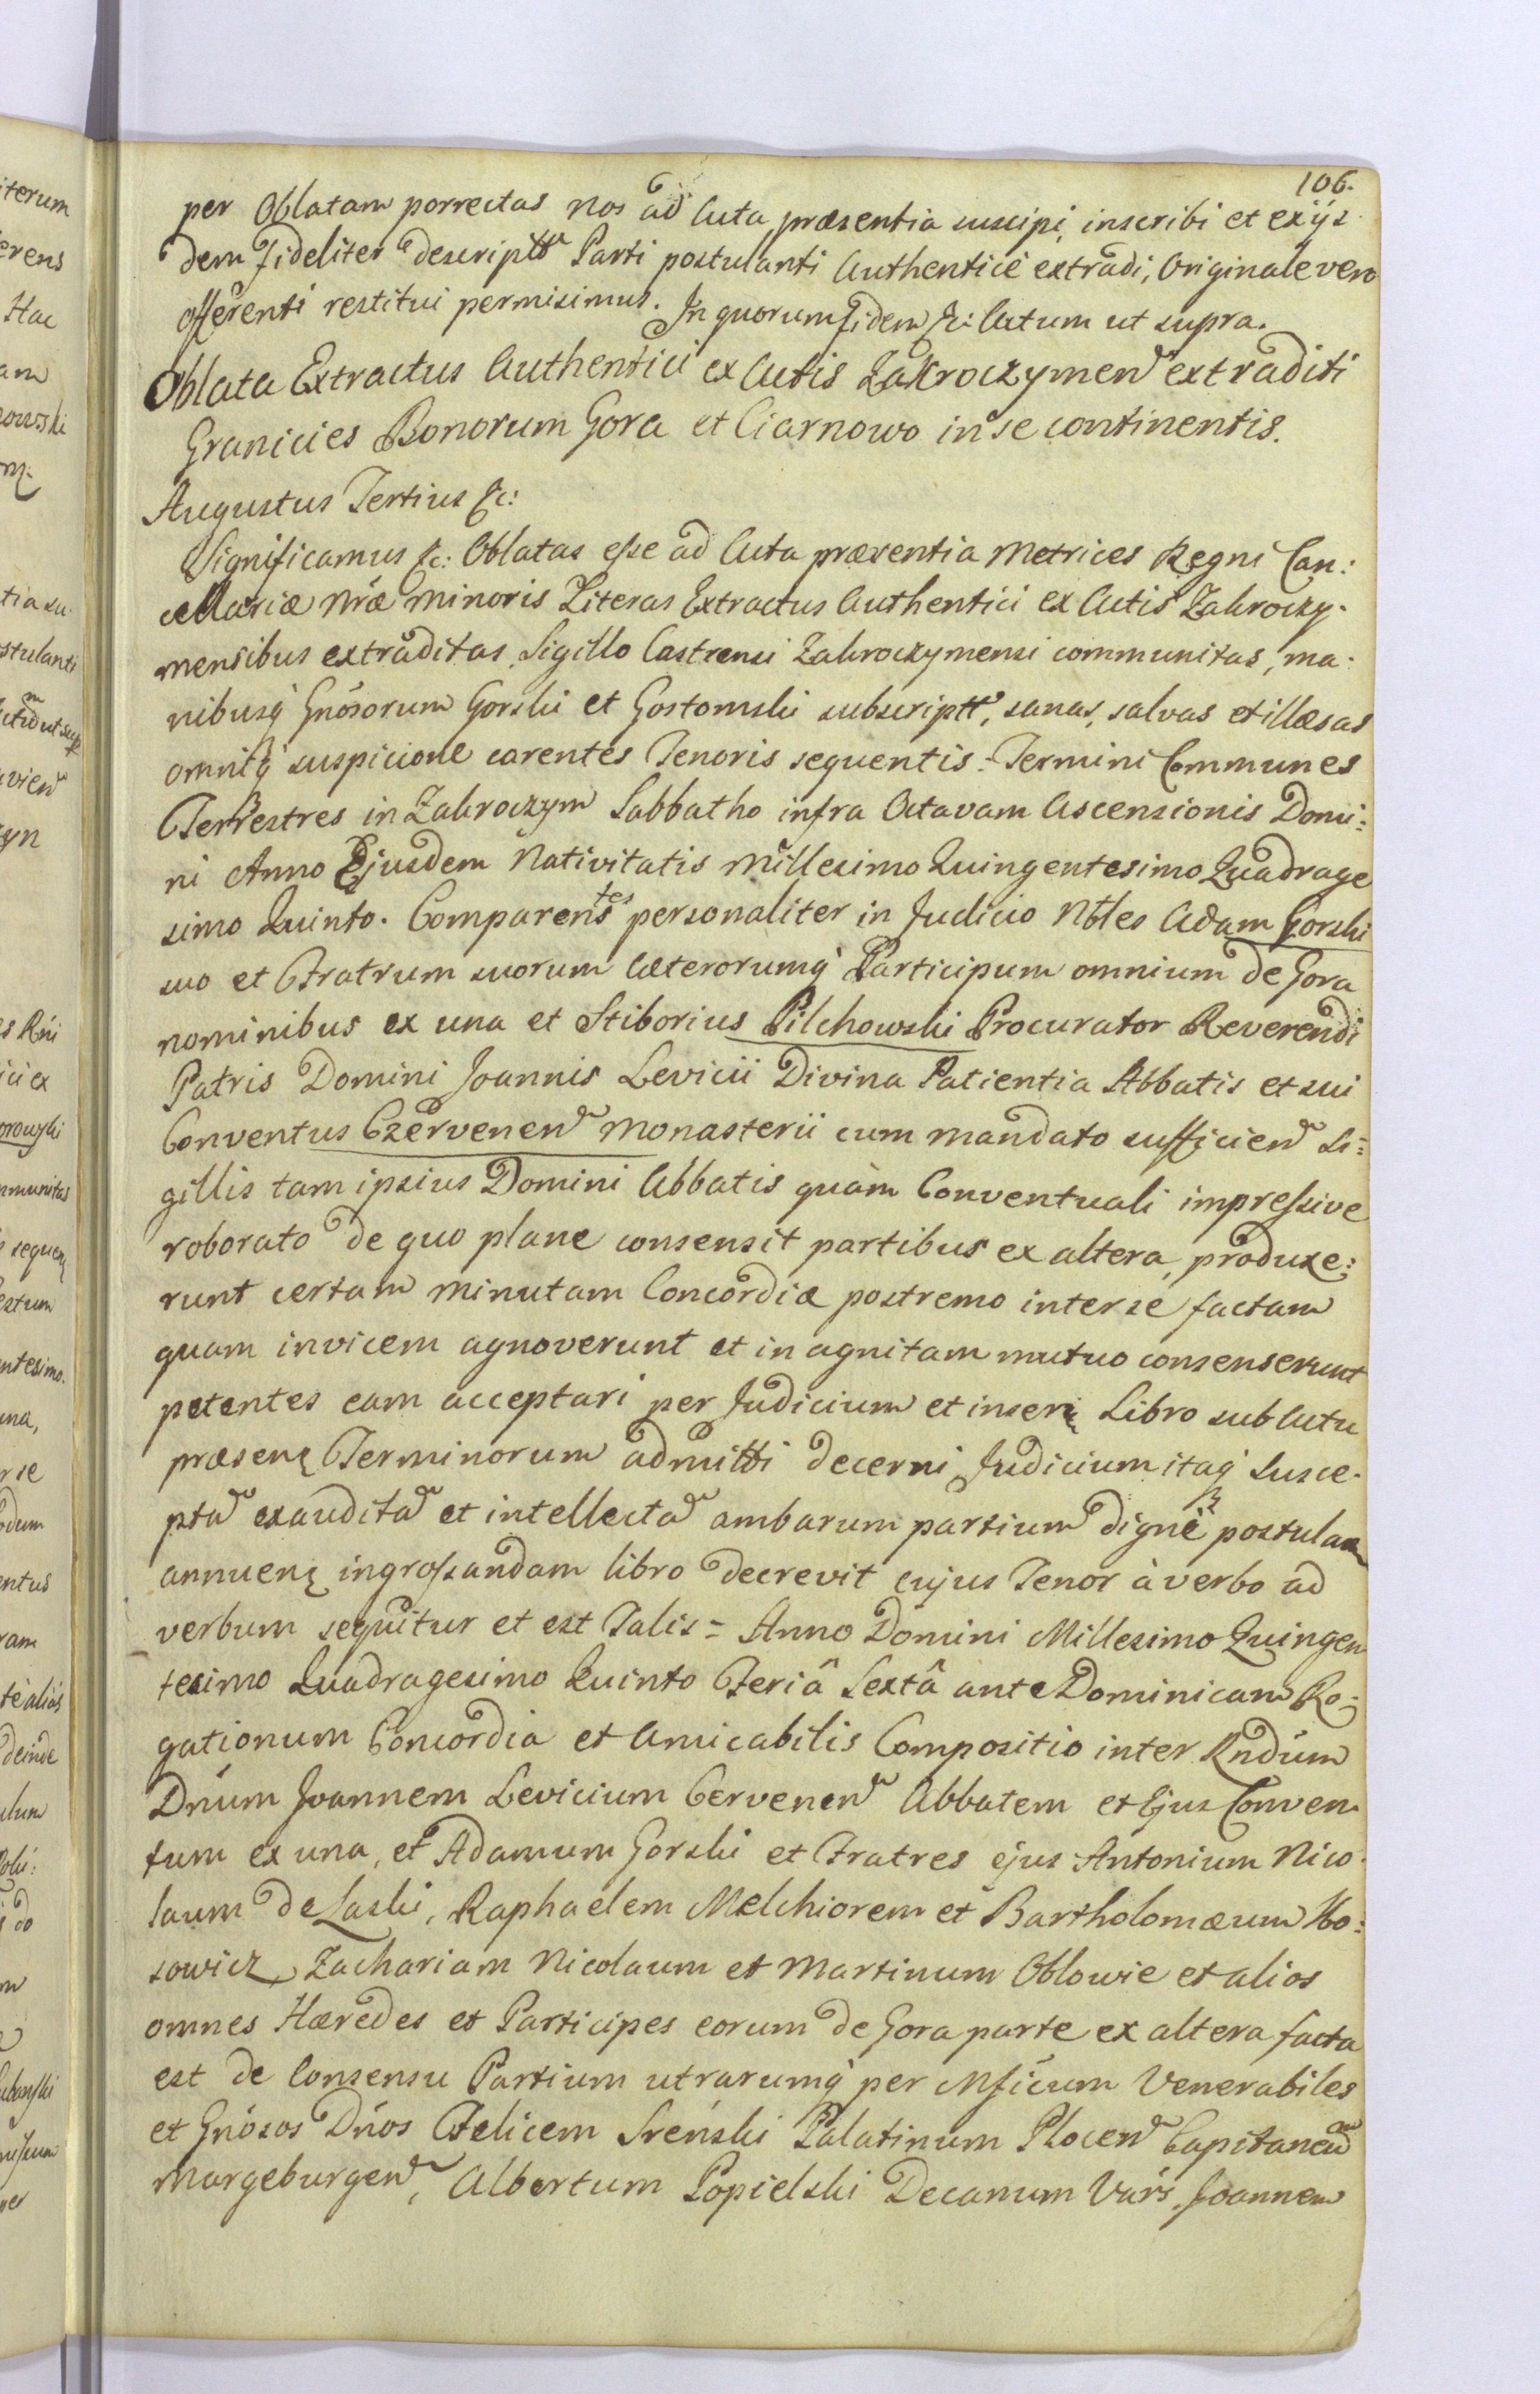 106.
per Oblatam porrectas nos ad Acta præsentia suscipi, inscribi et exijs
dem fideliter descriptt Parti postulanti Authenticè extradi, Originale vero
offerenti restitui permisimus. In quorum fidem &c: Actum ut supra.
Oblata Extractus Authentici ex Actis Zakroczymen extraditi
Granicies Bonorum Gora et Ciarnowo in se continentis.
Augustus Tertius &c:
Significamus &c: Oblatas esse ad Acta præsentia Metrices Regni Can:
cellariæ Nræ Minoris Literas Extractus Authentici ex Actis Zakroczy-
mensibus extraditas, Sigillo Castrensi Zakroczymensi communitas, ma-
nibusq Gnosorum Gorski et Gostomski subscriptt, sanas, salvas et illæsas
omniq suspicione carentes Tenoris sequentis = Termini Communes
Terrestres in Zakroczym Sabbatho infra Octavam Ascensionis Domi:
ni Anno Ejusdem Nativitatis Millesimo Quingentesimo Quadrage
simo Quinto. Comparentes personaliter in Judicio Nbles Adam Gorski
suo et Fratrum suorum Cæterorumq Participum omnium de Gora
nominibus ex una et Stiborius Pilchowski Procurator Reverendi
Patris Domini Joannis Levicii Divina Patientia Abbatis et sui
Conventus Czervenen Monasterii cum mandato sufficien Si=
gillis tam ipsius Domini Abbatis quàm Conventuali impressive
roborato de quo plane consensit partibus ex altera, produxe:
runt certam minutam Concordiæ postremo inter se factam
quam invicem agnoverunt et in agnitam mutuo consenserunt
petentes eam acceptari per Judicium et inseri Libro sub Actu
præsen Terminorum admitti decerni Judicium itaq susce-
pta exaudita et intellecta ambarum partium digne postulan
annuen ingrossandam libro decrevit cujus Tenor à verbo ad
verbum sequitur et est Talis = Anno Domini Millesimo Quingen
tesimo Quadragesimo Quinto Feriâ Sextâ ante Dominicam Ro-
gationum Concordia et Amicabilis Compositio inter Rndum
Dnum Joannem Levicium Cervenen Abbatem et Ejus Conven-
tum ex una, et Adamum Gorski et Fratres ejus Antonium Nico-
laum de Laski, Raphaelem Melchiorem et Bartholomæum Ho:
sowicz, Zachariam Nicolaum et Martinum Oblowie et alios
omnes Hæredes et Participes eorum de Gora parte ex altera facta
est de Consensu Partium utrarumq per Mficum Venerabiles
et Gnosos Dnos Felicem Sreński Palatinum Plocen Capitaneu
Margeburgen, Albertum Popielski Decanum Vars. Joannem